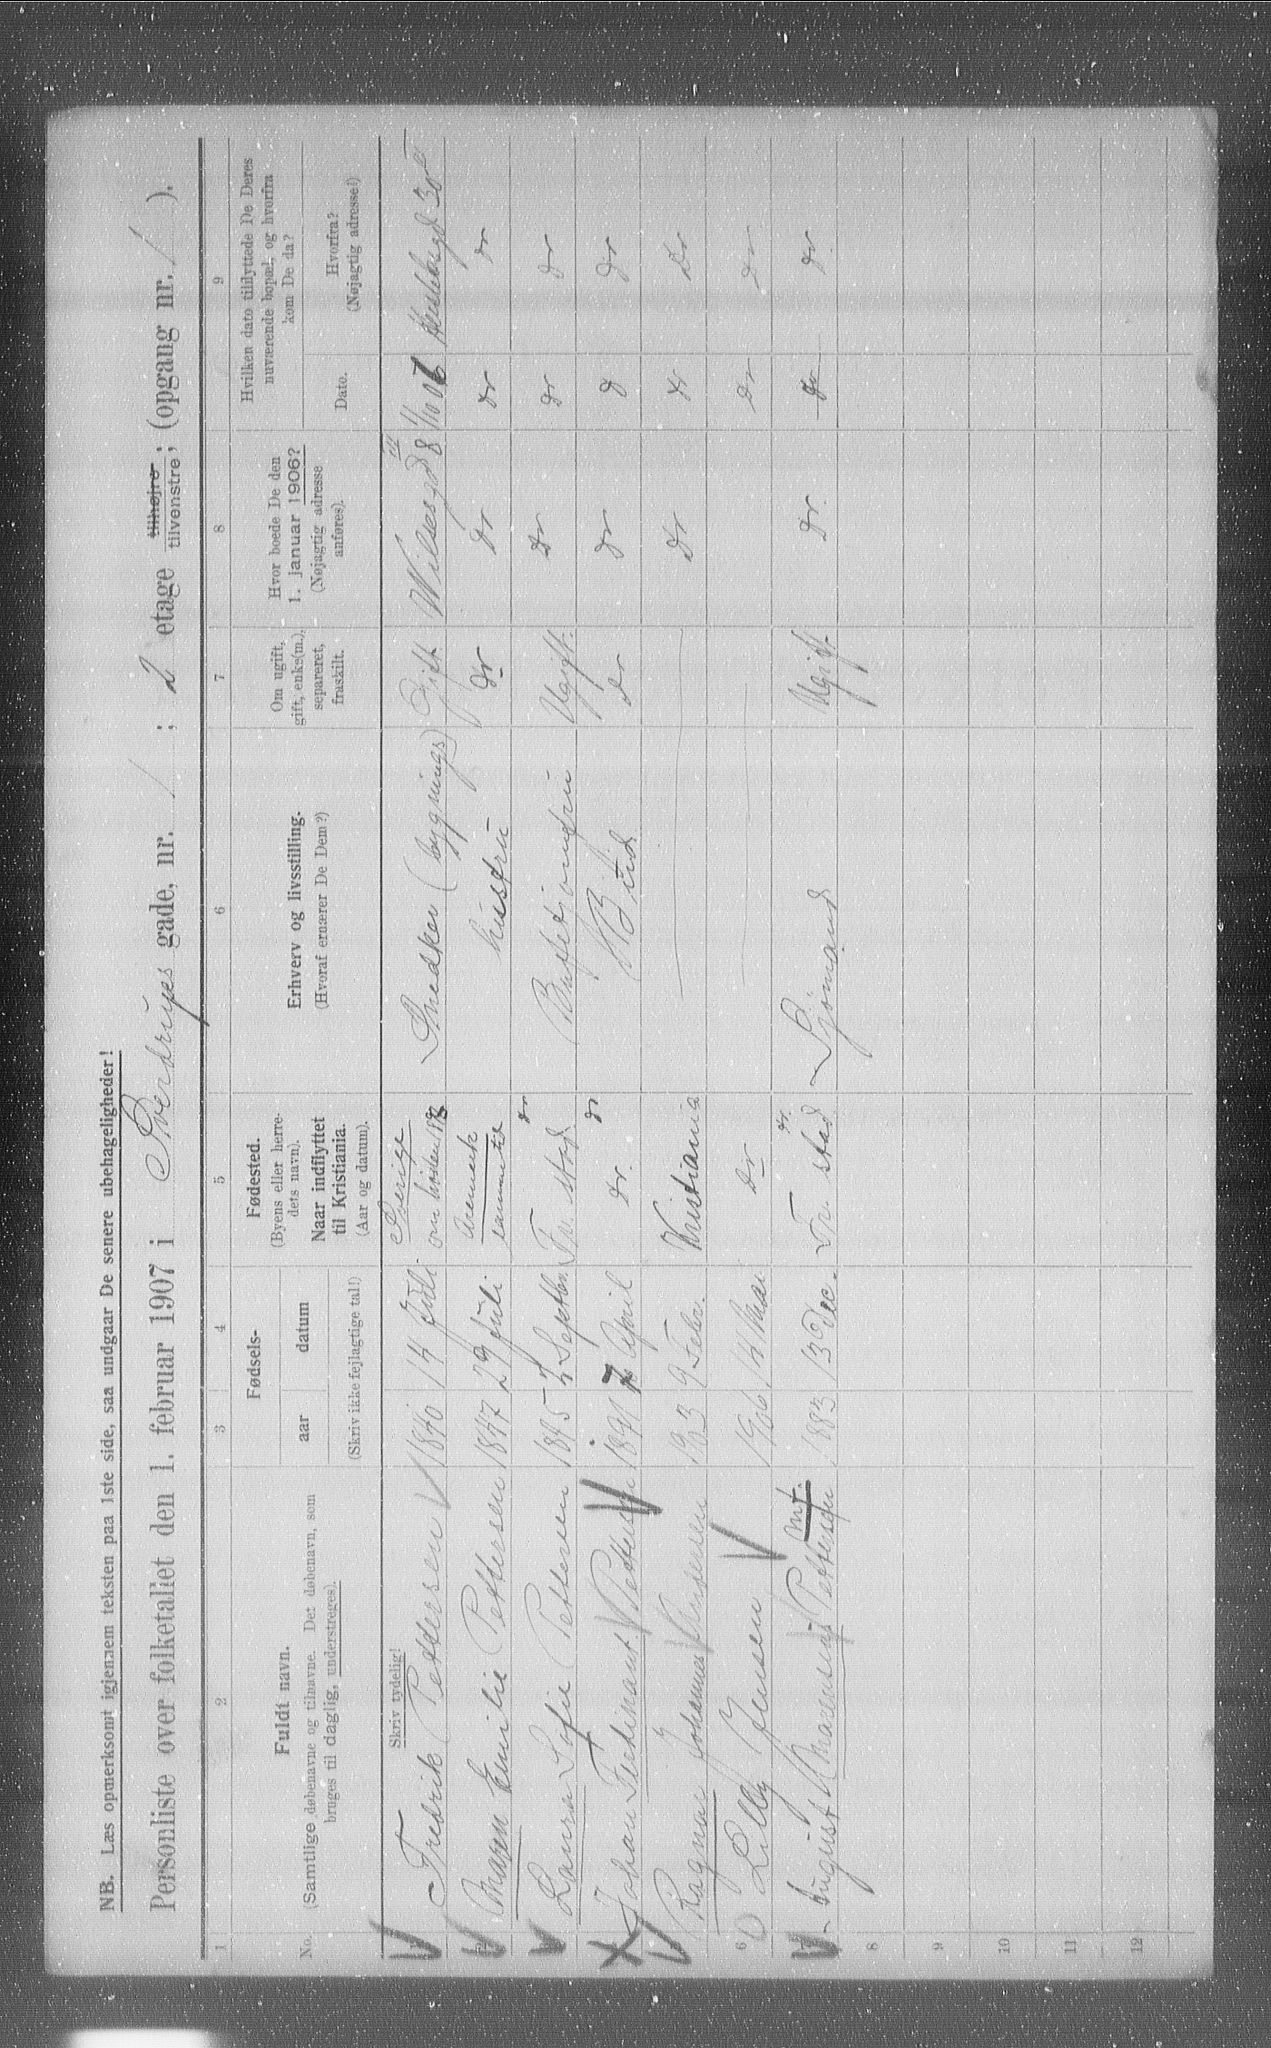 NB. Læs opmerksomt igjennem teksten paa 1ste side, saa undgaar De senere ubehageligheder!
Personliste over folketallet den 1. februar 1907 i Sverdrups gade, nr. 1 ; 2 etage tilhøjre tilvenstre; (opgang nr. 1 ).
1 2 3 4 5 6 7 8 9
No.
Fuldt navn.
(Samtlige døbenavne og tilnavne. Det døbenavn, som
bruges til daglig, understreges).
Fødsels-
aar datum
(Skriv ikke fejlagtige tal!)
Fødested.
(Byens eller herre-
dets navn).
Naar indflyttet
til Kristiania.
(Aar og datum).
Erhverv og livsstilling.
(Hvoraf ernærer De Dem?)
Om ugift,
gift, enke(m.),
separeret,
fraskilt.
Hvor boede De den
1. januar 1906?
(Nøjagtig adresse
anføres).
Hvilken dato tilflyttede De Deres
nuværende bopæl, og hvorfra
kom De da?
Dato.
Hvorfra?
(Nøjagtig adresse!)
Skriv tydelig!
Fredrik Pettersen 1846 14 Juli Sverige Snedker (bygnings) Gift Wilsesgd 8 III 1/10 06
2 Maren Emilie Pettersen 1847 29 Juli Aremark hustru dr dr dr dr
Laura Sofie Pettersen Septbr. Fr. stad dr Ugift. dr dr dr
Johan Ferdinant Pettersen 1891 7 April dr. dr Bud dr dr d dr
Ragnar Johannes 1903 9 Febr. Kristiania dr dr dr
6 Lilly Jensen 1906 14 Mai dr dr dr
August Marensius Pettersen mf. 1883 13 Dec. Fr. stad dr. Sjömand Ugift. dr. dr dr
8
9
10
11
12